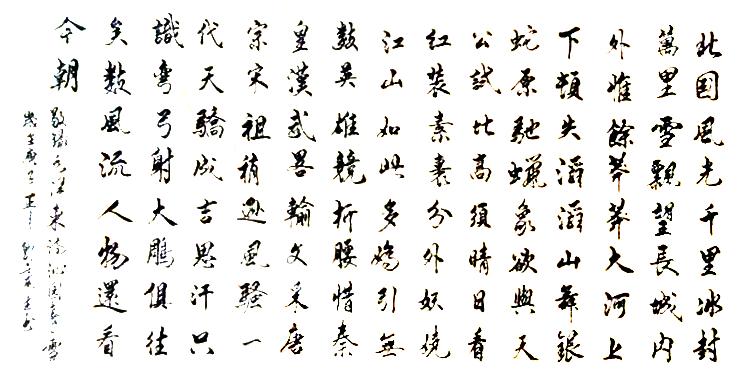 北国風光千里冰封
萬里雪飄望長城内
外惟餘莽莽大河上
下頓失滔滔山舞銀
蛇原馳蠟象欲與天
公試比高須晴日看
紅裝素裹分外妖嬈
江山如此多嬌引無
数英雄競折腰惜秦
皇漢武畧輸文采唐
宗宋祖稍遜風騷一
代天驕成吉思汗只
識彎弓射大鵰俱往
矣数風流人物還看
今朝
敬録毛澤東詞沁園春雪